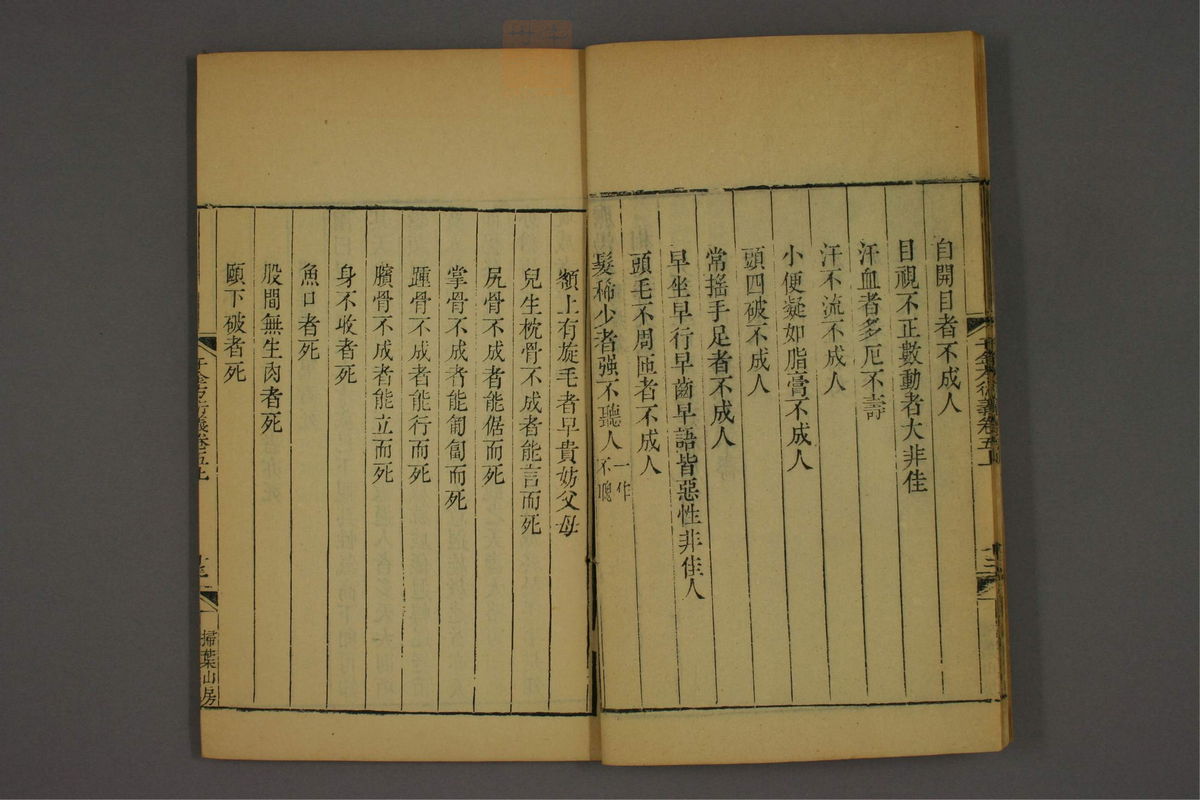 自開目者不成人
目視不正數動者大非佳
汗血者多厄不壽
汗不流不成人
小便凝如脂膏不成人
頭四破不成人
常搖手足者不成人
早坐早行早齒早語皆惡性非佳人
頭毛不周匝者不成人
髮稀少者强不聽人一作不聰
額上有旋毛者早貴妨父母
兒生枕骨不成者能言而死
尻骨不成者能倨而死
掌骨不成者能匍匐而死
踵骨不成者能行而死
臏骨不成者能立而死
身不收者死
魚口者死
股間無生肉者死
頤下破者死
千金方衍義卷五上
掃葉山房